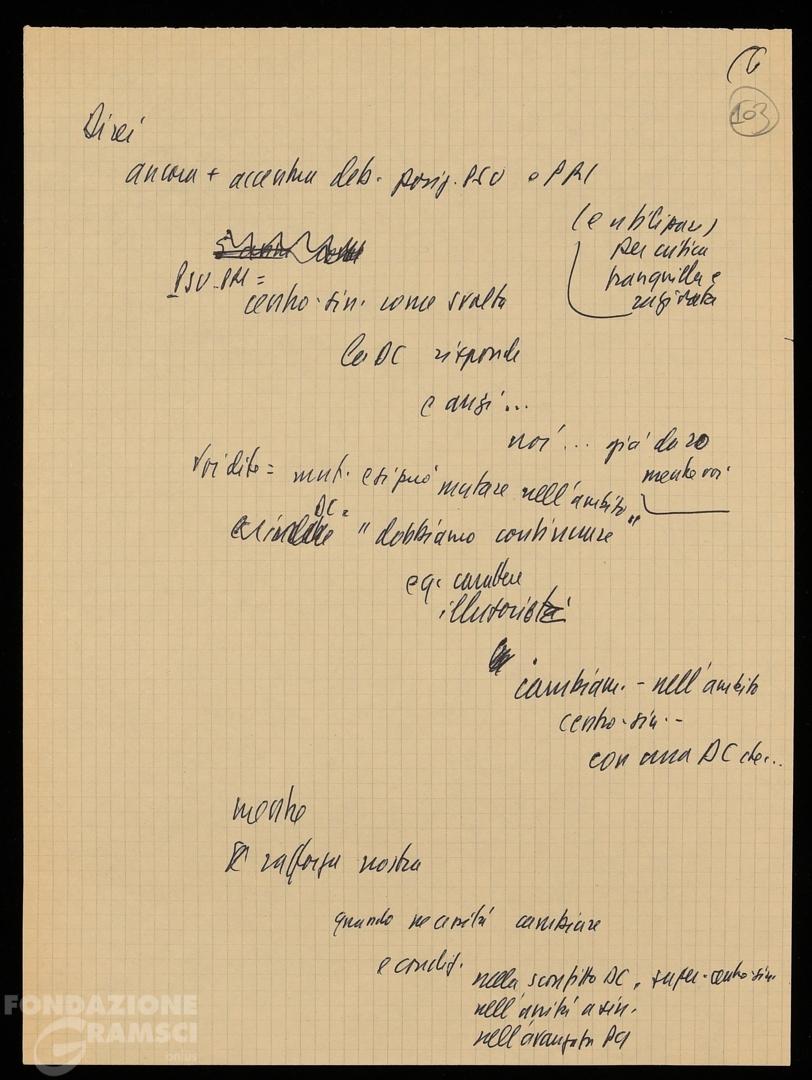 (6
103
Direi
ancora + accentua deb. posiz. PSU e PRI
(e utilizzare)
per critica
tranquilla e
ragionata
PSU-PRI =
centro-sin. come svolta
La DC risponde
e anzi...
noi ... già da 20
mente voi
voi dite = mut. e si può mutare nell'ambito
DC =
"dobbiamo continuare"
e q. carattere
illusorio
cambiam. - nell'ambito
centro-sin. -
con una DC che...
mentre
si rafforza nostra
quando necessità cambiare
e condiz.
nella sconfitta DC, super. centro-sin.
nell'unità a sin.
nell'avanzata PCI
FONDAZIONE
GRAMSCI
onlus